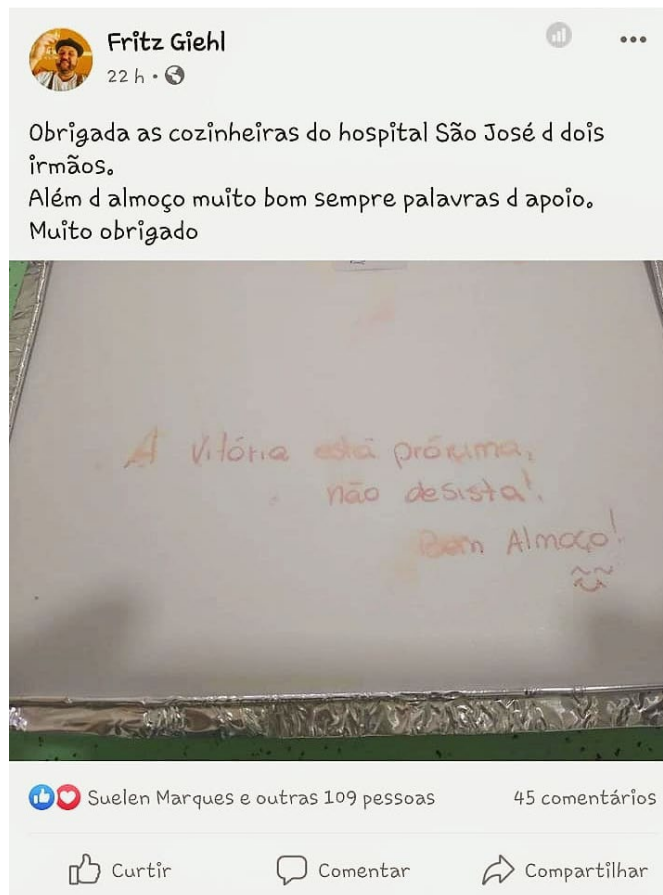 Fritz Giehl
22 h
Obrigada as cozinheiras do hospital São José d dois
irmãos.
Além d almoço muito bom sempre palavras d apoio.
Muito obrigado
A Vitória está próxima,
não desista!
Bom Almoço!
Suelen Marques e outras 109 pessoas
45 comentários
Curtir
Comentar
Compartilhar